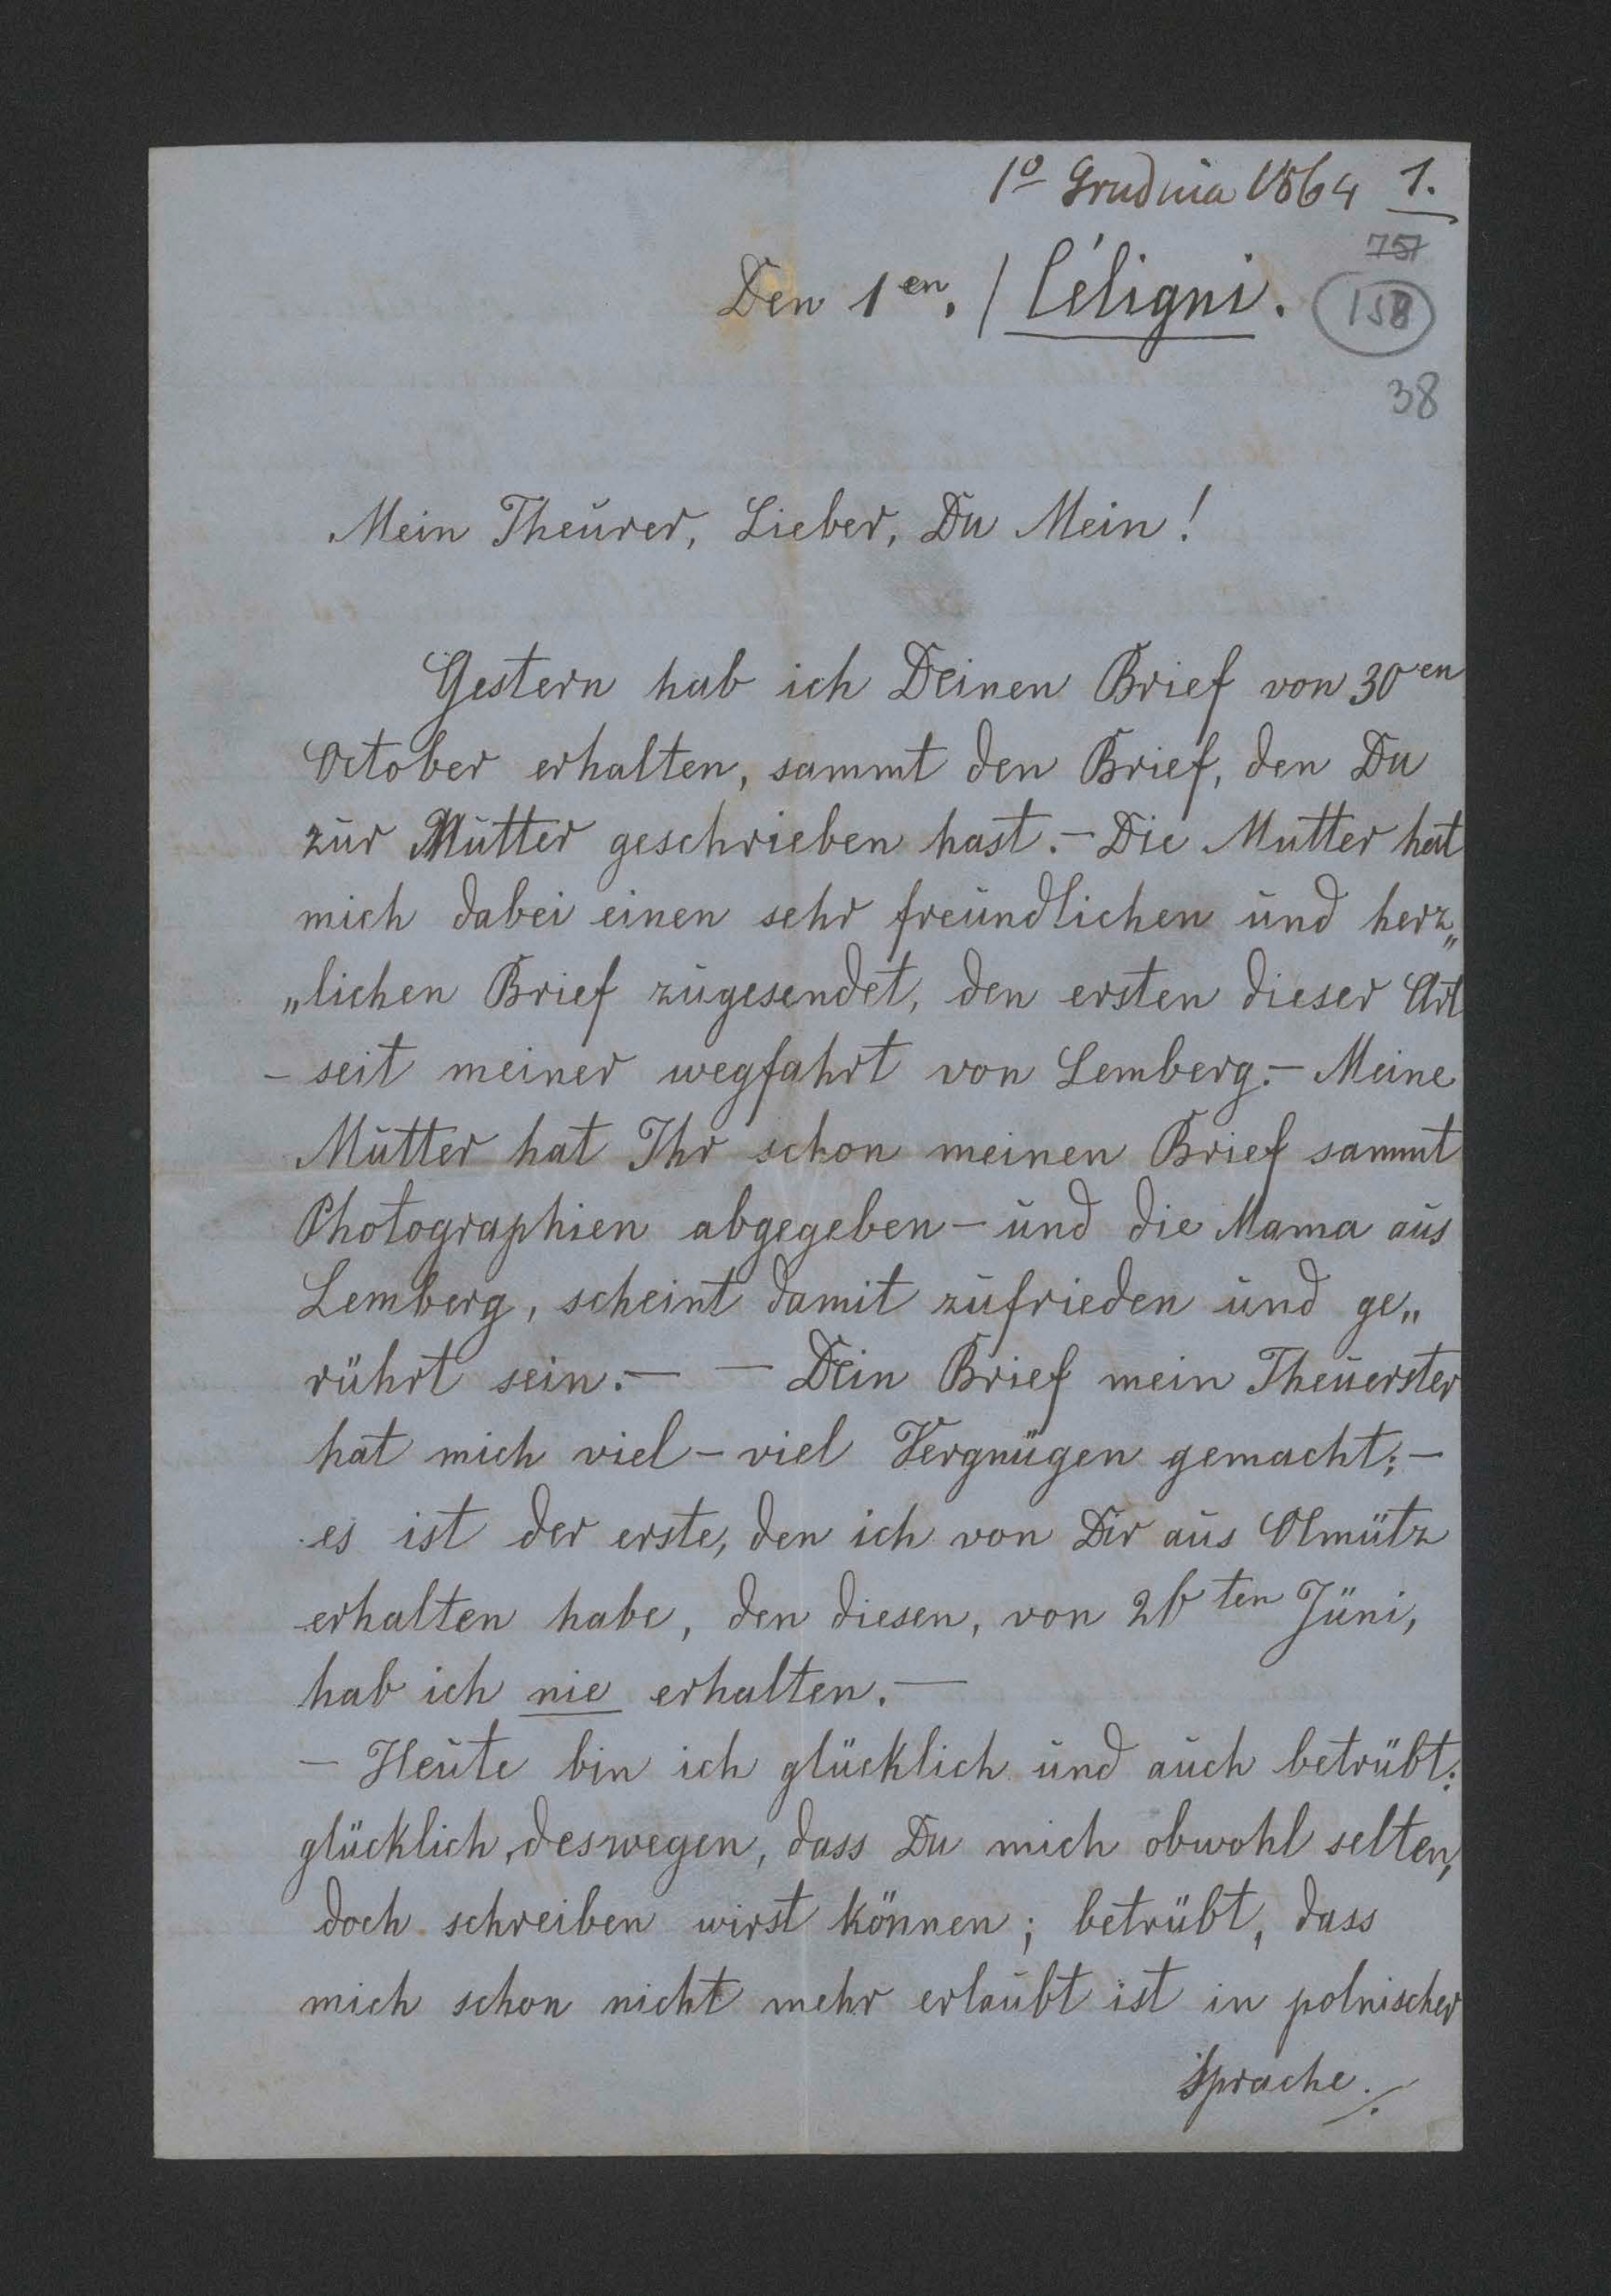 1º Grudnia 1864 1.
757
Den 1en. / Céligni. 158
38
Mein Theurer, Lieber, Du Mein!
Gestern hab ich Deinen Brief von 30en
October erhalten, sammt den Brief, den Du
zur Mutter geschrieben hast. – Die Mutter hat
mich dabei einen sehr freundlichen und herz„
„lichen Brief zugesendet, den ersten dieser Art
– seit meiner wegfahrt von Lemberg. – Meine
Mutter hat Ihr schon meinen Brief sammt
Photographien abgegeben – und die Mama aus
Lemberg, scheint damit zufrieden und ge„
rührt sein. – – Dein Brief mein Theuerster
hat mich viel – viel Vergnügen gemacht; –
es ist der erste, den ich von Dir aus Olmütz
erhalten habe, den diesen, von 26ten Jüni,
hab ich nie erhalten. –
– Heute bin ich glücklich und auch betrübt:
glücklich, deswegen, dass Du mich obwohl selten,
doch schreiben wirst können; betrübt, dass
mich schon nicht mehr erlaubt ist in polnischer
Sprache ./.